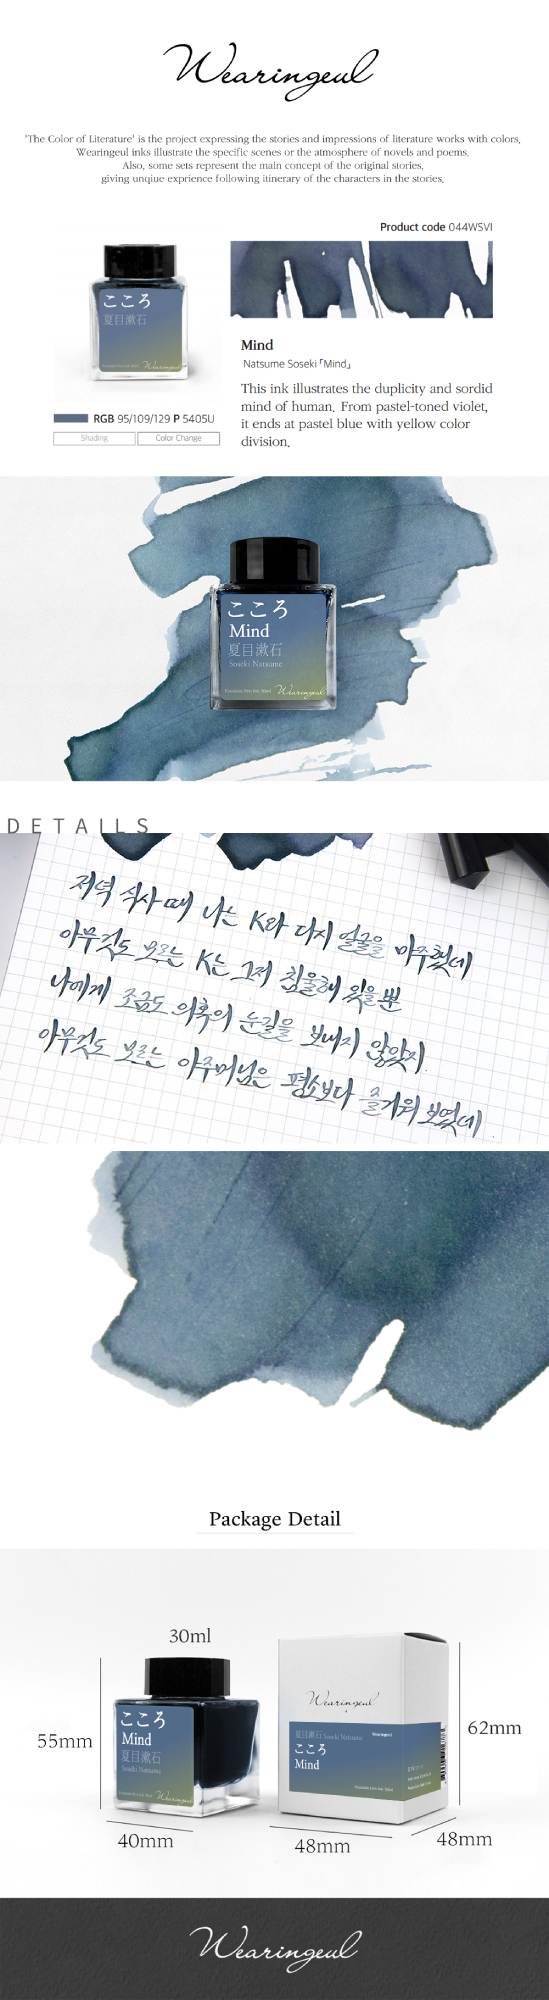 Wearingeul
'The Color of Literature' is the project expressing the stories and impressions of literature works with colors,
Wearingeul inks illustrate the specific scenes or the atmosphere of novels and poems.
Also, some sets represent the main concept of the original stories,
giving unqiue exprience following itinerary of the characters in the stories.
Product code 044WSVI
こころ
夏目漱石
Wearingeul
Mind
Natsume Soseki「Mind」
This ink illustrates the duplicity and sordid
mind of human. From pastel-toned violet,
it ends at pastel blue with yellow color
division.
RGB 95/109/129 P 5405U
Shading
Color Change
こころ
Mind
夏目漱石
Soseki Natsume
Fountain Pen Ink, 30ml
Wearingeul
DETAILS
저녁 식사 때 나는 K와 다시 얼굴을 마주했네
아무것도 모르는 K는 그저 침울해 있을 뿐
나에게 조금도 의혹의 눈길을 보내지 않았지
아무것도 모르는 아주머님은 평소보다 즐거워 보였네
Package Detail
30ml
55mm
40mm
こころ
Mind
夏目漱石
Soseki Natsume
Wearingeul
Wearingeul
夏目漱石 Soseki Natsume
Wearingeul
こころ
Mind
62mm
48mm
48mm
Wearingeul